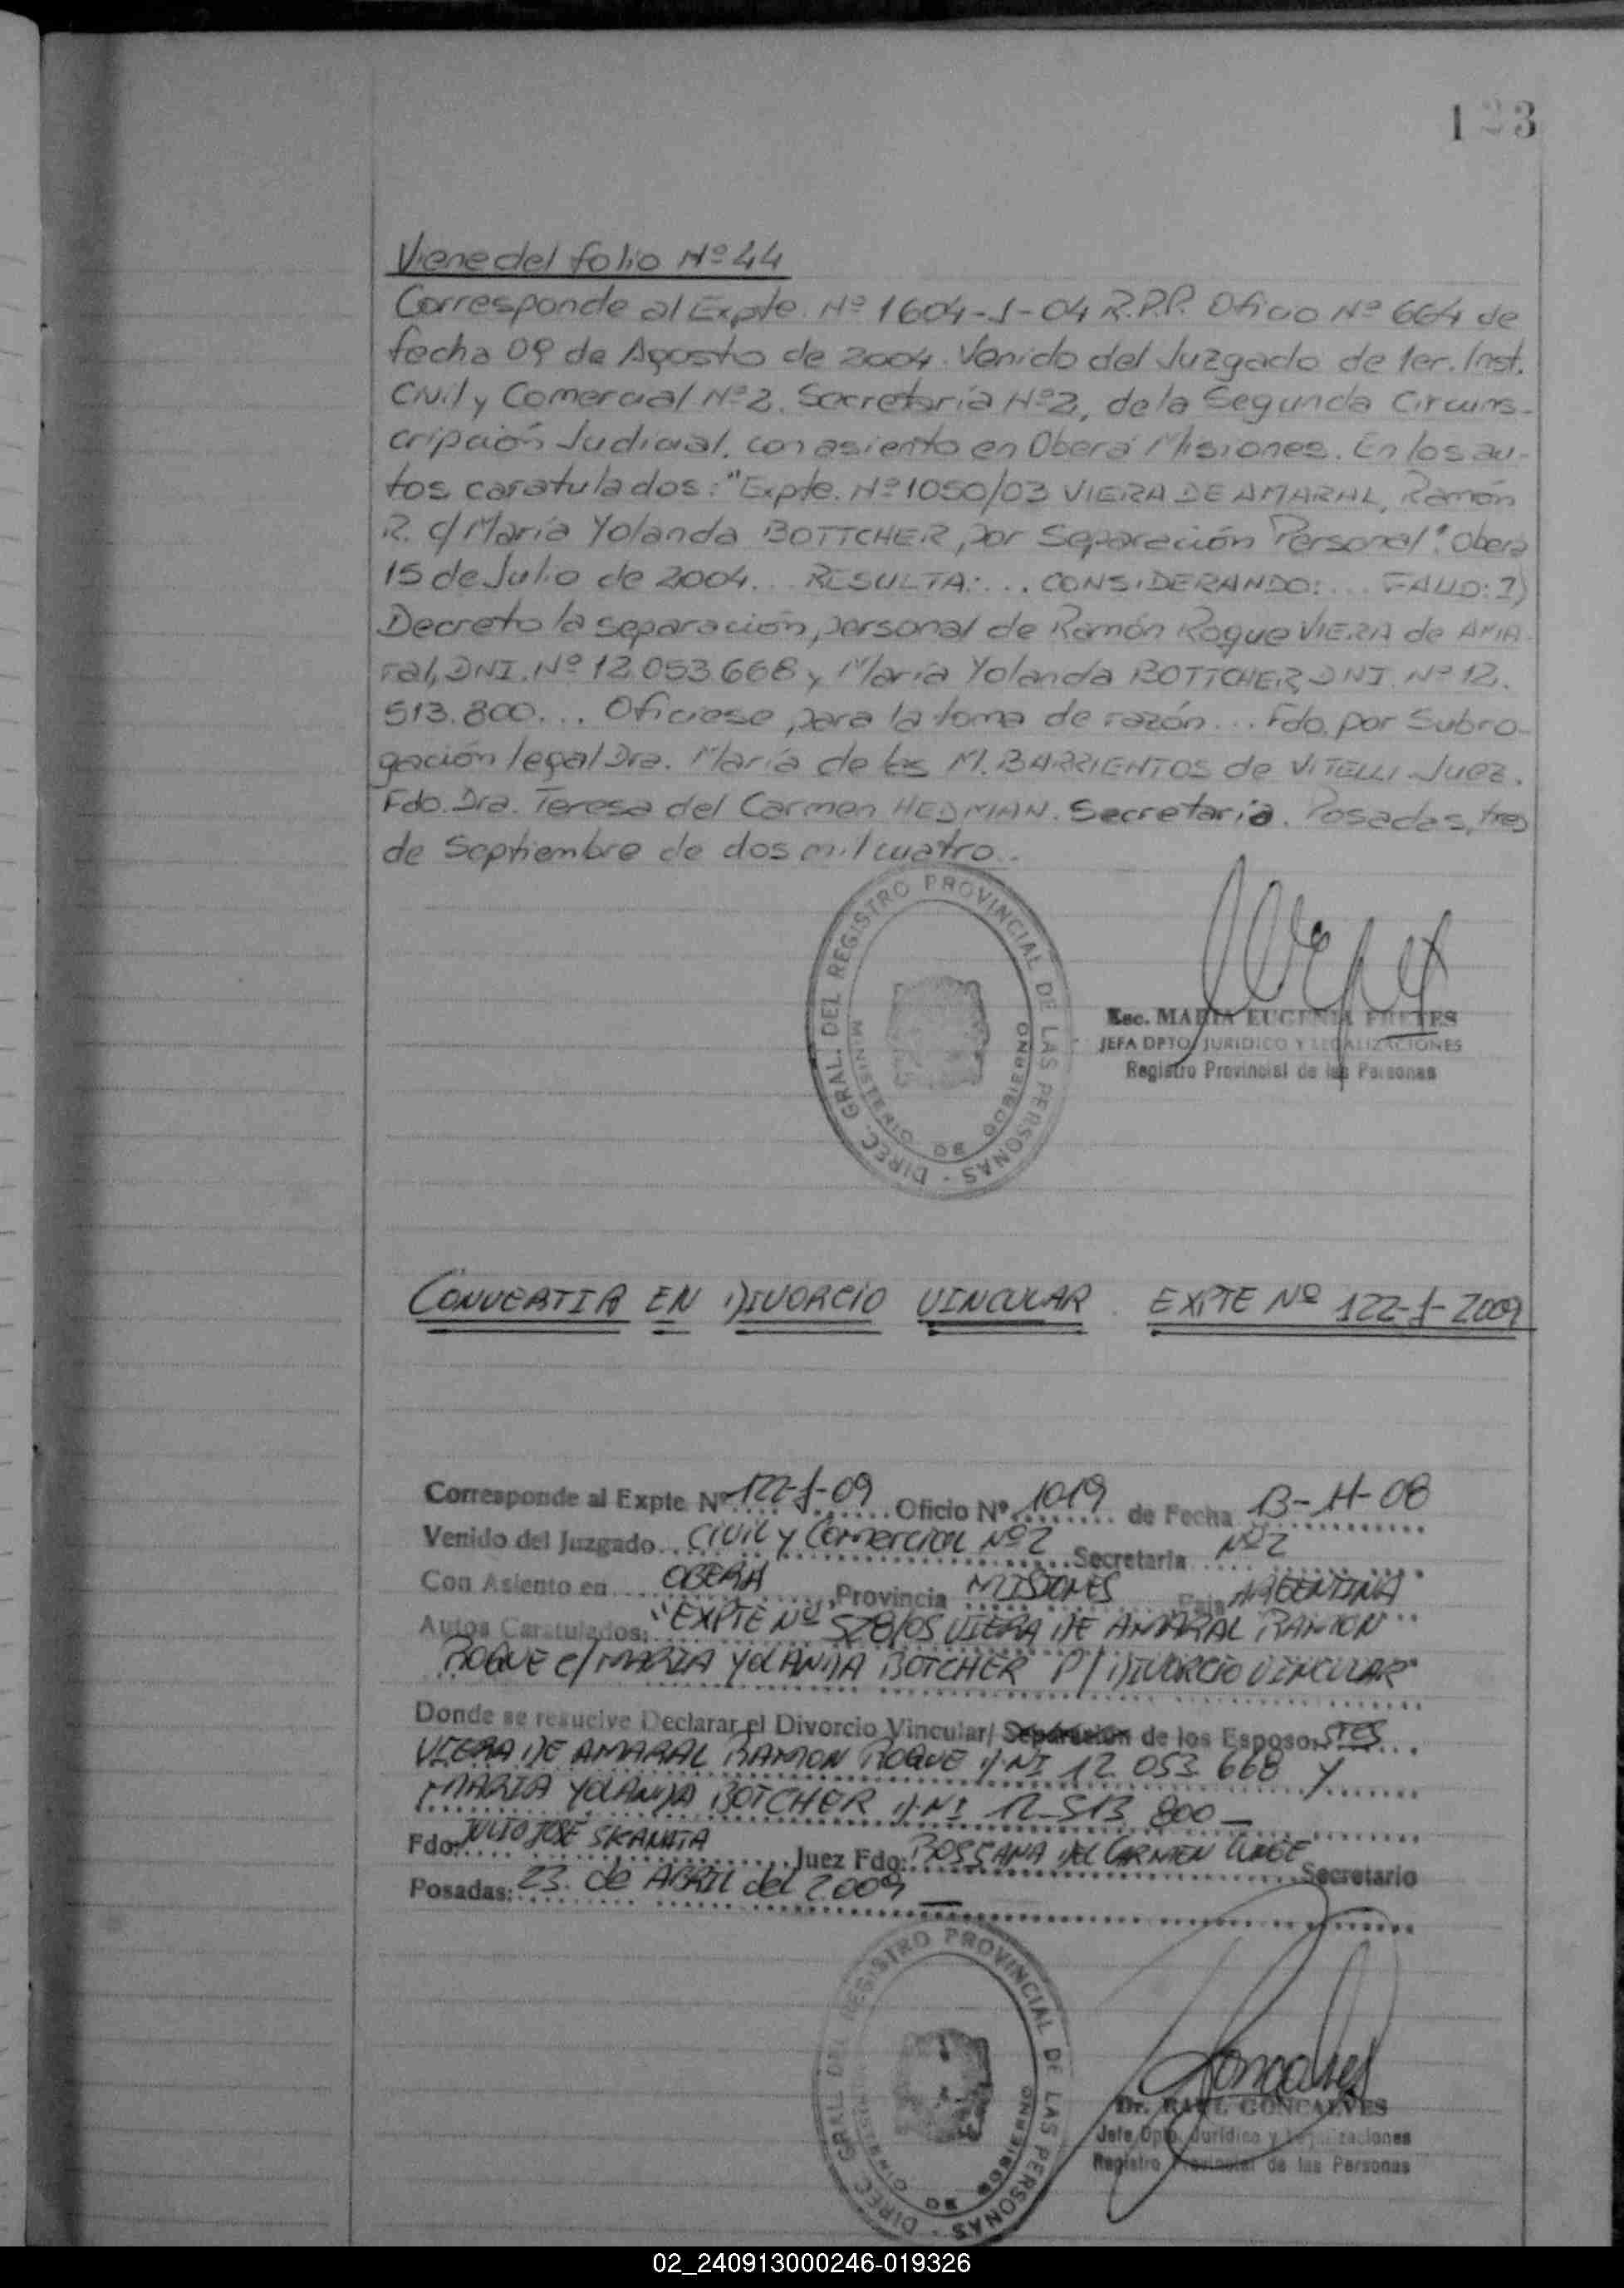 123
Viene del folio Nº 44
Corresponde al Expte. Nº 1604-J-04 R.P.P. Oficio Nº 664 de
fecha 09 de Agosto de 2004. Venido del Juzgado de 1er. Inst.
Civil y Comercial Nº 2. Secretaría Nº 2, de la Segunda Circuns-
cripción Judicial, con asiento en Oberá Misiones. En los au-
tos caratulados: "Expte. Nº 1050/03 VIERA DE AMARAL, Ramón
R. c/ María Yolanda BOTTCHER, por Separación Personal". Oberá
15 de Julio de 2004... RESULTA:... CONSIDERANDO:... FALLO: 1)
Decreto la separación personal de Ramón Roque VIERA de AMA-
ral, DNI. Nº 12.053.668 y María Yolanda BOTTCHER, DNI. Nº 12.
513.800... Ofíciese para la toma de razón... Fdo. por Subro-
gación legal Dra. María de las M. BARRIENTOS de VITELLI. Juez.
Fdo. Dra. Teresa del Carmen HEDMAN. Secretaria. Posadas, tres
de Septiembre de dos mil cuatro.
DIREC. GRAL. DEL REGISTRO PROVINCIAL DE LAS PERSONAS -
MINISTERIO DE GOBIERNO
Esc. MARIA EUGENIA FREYES
JEFA DPTO. JURIDICO Y LEGALIZACIONES
Registro Provincial de las Personas
CONVERTIR EN DIVORCIO VINCULAR. EXPTE Nº 122-J-2009
Corresponde al Expte Nº 122-J-09 Oficio Nº 1019 de Fecha 13-11-08
Venido del Juzgado CIVIL y Comercial Nº 2 Secretaria Nº 2
Con Asiento en OBERA Provincia MISIONES Pais ARGENTINA
Autos Caratulados: "EXPTE Nº 528/05 VIERA DE AMARAL RAMON
ROQUE c/ MARIA YOLANDA BOTCHER P/ DIVORCIO VINCULAR"
Donde se resuelve Declarar el Divorcio Vincular/ Separación de los Esposos STES
VIERA DE AMARAL RAMON ROQUE D.NI 12.053.668 y
MARIA YOLANDA BOTCHER D.NI 12.513.800_
Fdo: JULIO JOSE SKANATA Juez Fdo: ROSSANA DEL CARMEN Secretario
Posadas: 23 de ABRIL del 2009
DIREC. GRAL. DEL REGISTRO PROVINCIAL DE LAS PERSONAS -
MINISTERIO DE GOBIERNO
Dr. RAUL GONCALVES
Jefe Dpto. Jurídico y Legalizaciones
Registro Provincial de las Personas
02_240913000246-019326